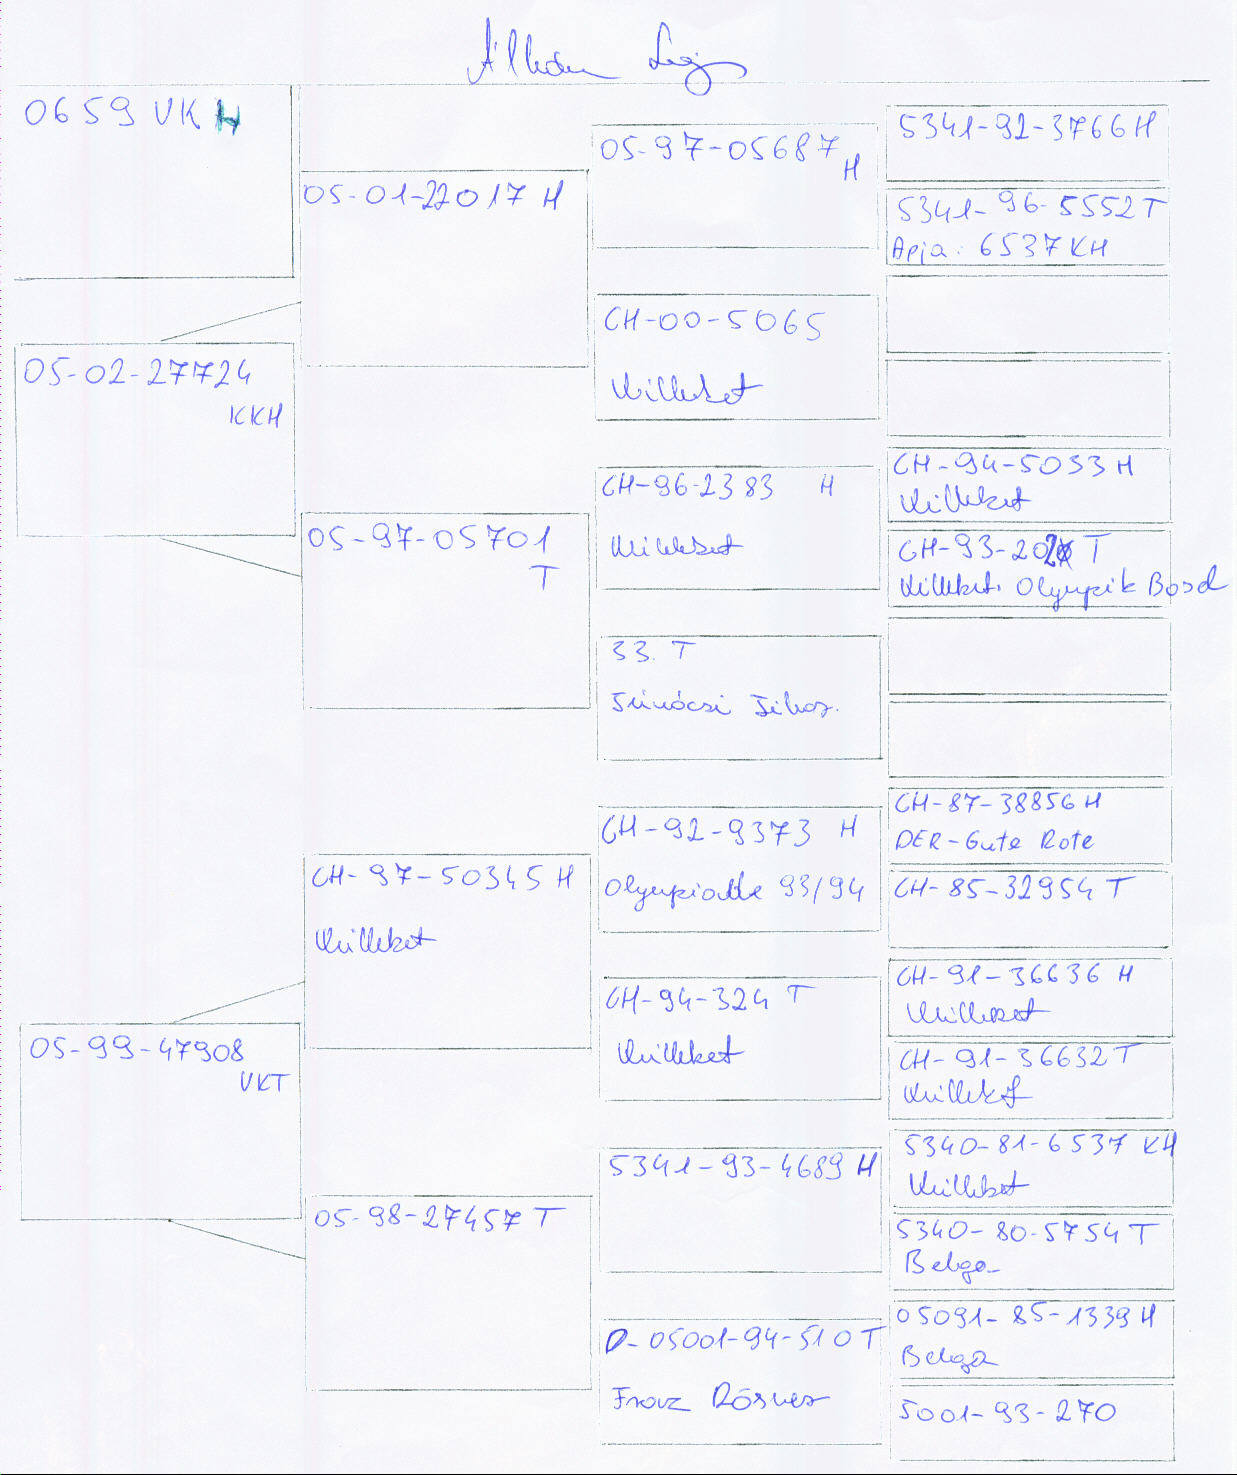 0659 VKH
05-02-27724
KKH
05-99-47908
VKT
05-01-22017 H
05-97-05701
T
CH-97-50345 H
Külleket
05-98-27457 T
05-97-05687
H
CH-00-5065
Külleket
CH-96-2383 H
Külleket
33. T
CH-92-9373 H
Olympiade 93/94
CH-94-324 T
Külleket
5341-93-4689 H
D-05001-94-510 T
Franz
5341-92-3766 H
5341-96-5552 T
Apja: 6537 KH
CH-94-5033 H
Külleket
CH-93-202 T
Külleket. Olympik Bosd
CH-87-38856 H
DER-Gute Rote
CH-85-32954 T
CH-91-36636 H
Külleket
CH-91-36632 T
Külleket
5340-81-6537 KH
Külleket
5340-80-5754 T
Belga
05091-85-1339 H
Belga
5001-93-270